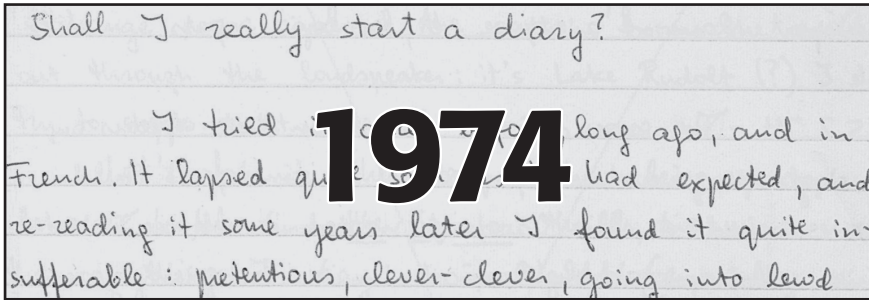 Shall I really start a diary?
I tried it once before, long ago, and in
1974
French. It lapsed quite soon, as I had expected, and
re-reading it some years later I found it quite in-
sufferable: pretentious, clever-clever, going into lewd